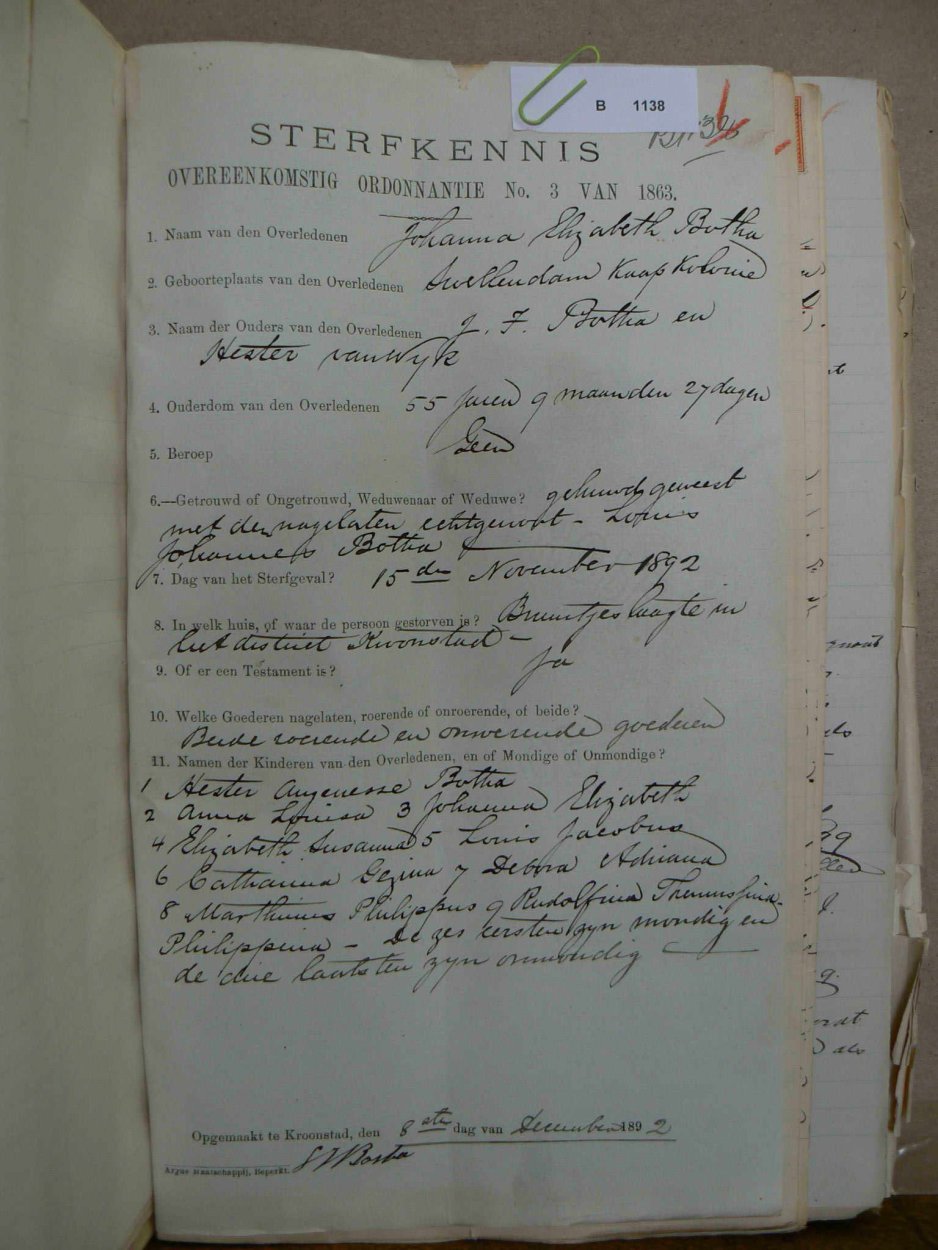 B 1138
STERFKENNIS
OVEREENKOMSTIG ORDONNANTIE No. 3 VAN 1863.
1. Naam van den Overledenen Johanna Elizabeth Botha
2. Geboorteplaats van den Overledenen Swellendam Kaap Kolonie
3. Naam der Ouders van den Overledenen J. F. Botha en
Hester van Wyk
4. Ouderdom van den Overledenen 55 Jaren 9 maanden 27 dagen
5. Beroep Geen
6.—Getrouwd of Ongetrouwd, Weduwenaar of Weduwe? gehuwd geweest
met den nagelaten echtgenoot - Louis
Johannes Botha
7. Dag van het Sterfgeval? 15de November 1892
8. In welk huis, of waar de persoon gestorven is? Bruintjes laagte in
het district Kroonstad -
9. Of er een Testament is? Ja
10. Welke Goederen nagelaten, roerende of onroerende, of beide?
Beide roerende en onroerende goederen
11. Namen der Kinderen van den Overledenen, en of Mondige of Onmondige?
1 Hester Angenesse Botha
2 Anna Louisa 3 Johanna Elizabeth
4 Elizabeth Susanna 5 Louis Jacobus
6 Catharina Gezina 7 Debora Adriana
8 Marthinus Philippus 9 Rudolfina
Philippina - De zes eersten zyn mondig en
de drie laatsten zyn onmondig
Opgemaakt te Kroonstad, den 8ste dag van December 1892
Botha
Argus Maatschappij, Beperkt.